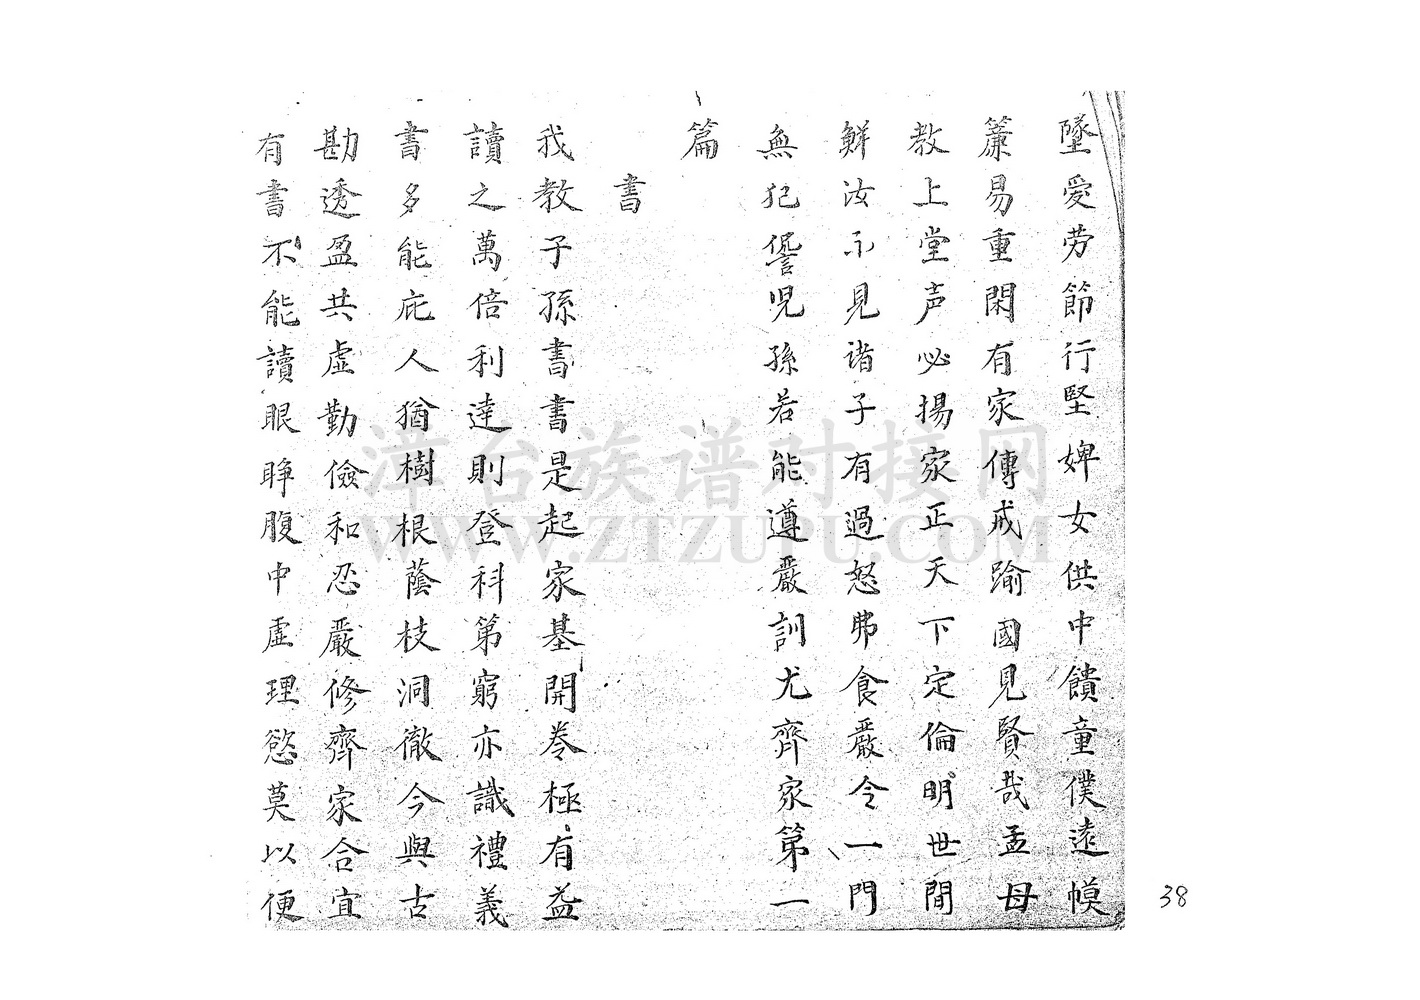 墜愛劳節行堅婢女供中饋童僕遠幙
簾易重閑有家傳戒踰國見賢哉孟母
教上堂声必揚家正天下定倫明世間
鮮汝不見诸子有過怒弗食嚴令一門
無犯儯児孫若能遵嚴訓尤齊家第一
篇
書
我教子孫書書是起家基開卷極有益
讀之萬倍利達則登科第窮亦識禮義
書多能庇人猶樹根蔭枝洞徹今與古
勘透盈共虚勤儉和忍嚴修齊家合宜
有書不能讀眼睁腹中虚理慾莫以便
漳台族谱对接网
WWW.ZTZUPU.COM
38